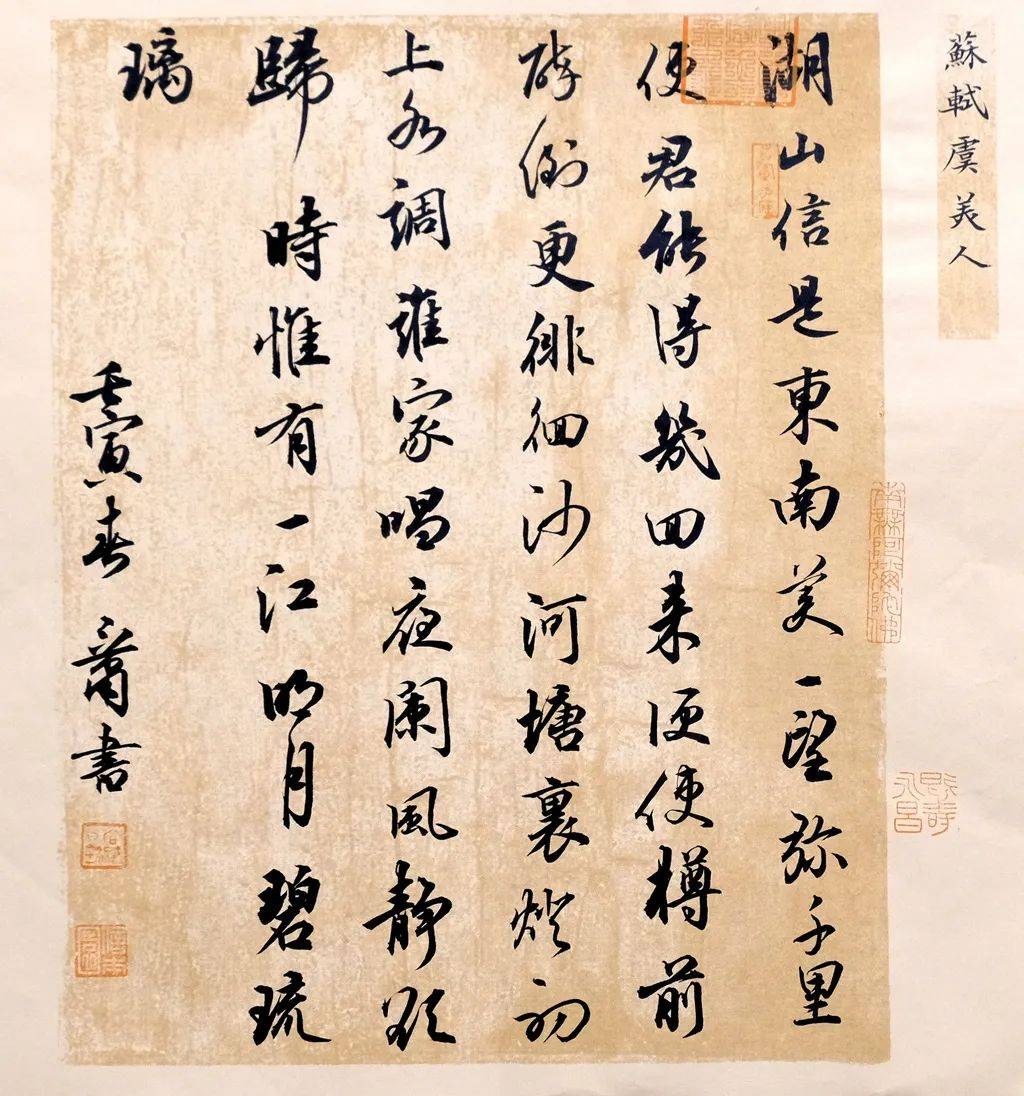 蘇軾虞美人
湖山信是東南美一望弥千里
使君能得幾回来便使樽前
醉倒更徘徊沙河塘裏燈初
上水調誰家唱夜闌風静欲
歸時惟有一江明月碧琉
璃
壬寅春書
南無阿彌陀佛
既壽永昌